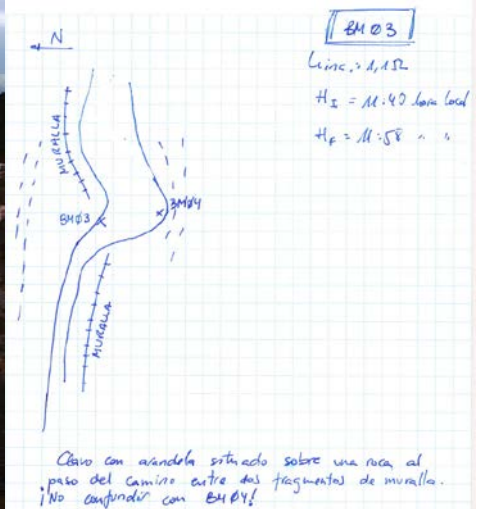 BMØ3
N
Linc.: 1,152
H_I = 11:40 hora local
H_F = 11:58 " "
MURALLA
BMØ3
BMØ4
MURALLA
Clavo con arandela situado sobre una roca al
paso del camino entre dos fragmentos de muralla.
¡No confundir con BMØ4!